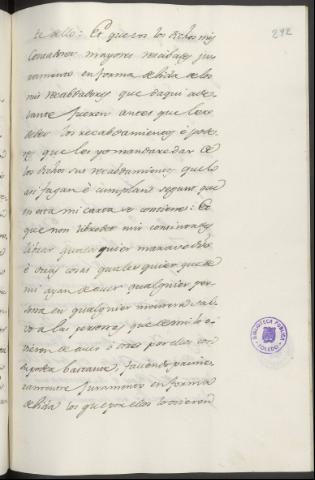 292
te dello: Et que vos los dichos mis
Contadores mayores recibades ju-
ramento en forma debida de los
mis recabdadores que daqui ade-
lante fueren antes que les
dedes los recabdamientos é pode-
res que les yo mandare dar de
los dichos sus recabdamientos que lo
asi fagan é cumplan segunt que
en esta mi carta se contiene: Et
que non libredes nin consintades
librar qualesquier maravedis
é otras cosas qualesquier que de
mi ayan de aver qualquier per-
sona en qualquier manera sal-
vo a las personas que de mi lo o-
vieren de aver é otros por ellos con
su poder bastante, faciendo primera-
ramente juramento en forma
debida los que por ellos lo ovieren
BIBLIOTECA PUBLICA
TOLEDO